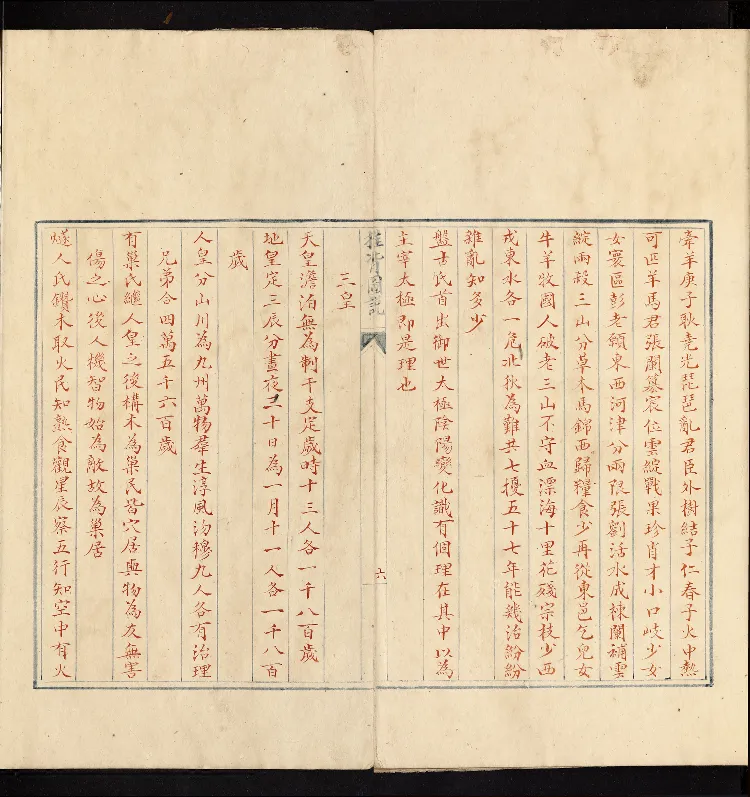 牽羊庚子耿堯光琵琶亂君臣外樹結子仁春子火中熱
可匹羊馬君張闌篡宸位雲綻戰果珍肖才小口岐少女
女寰區彭老頤東西河津分兩限張劉活水成棟闌補雲
綻兩殺三山分草木馬錦西歸糧食少再從東邑乞兒女
牛羊牧國人破老三山不守血漂海十里花殘宗枝少西
戎東水各一危北狄為難共七擾五十七年能幾治紛紛
雜亂知多少
盤古氏首出御世太極陰陽變化識有個理在其中以為
主宰太極即是理也
推背圖說
六
三皇
天皇澹泊無為制干支定歲時十三人各一千八百歲
地皇定三辰分晝夜三十日為一月十一人各一千八百
歲
人皇分山川為九州萬物羣生淳風沕穆九人各有治理
兄弟合四萬五千六百歲
有巢氏繼人皇之後構木為巢民皆穴居與物為友無害
傷之心後人機智物始為敵故為巢居
燧人氏鑽木取火民知熟食觀星辰察五行知空中有火